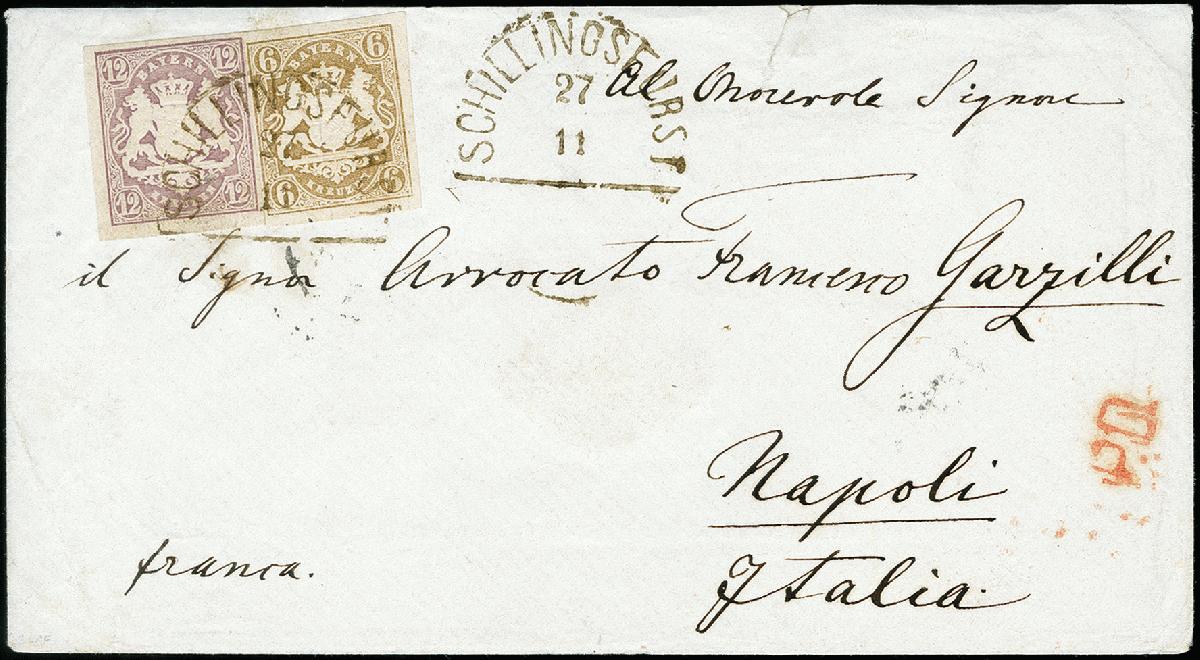 12 12
BAYERN
12 12
6 6
BAYERN
KREUZER
6 6
SCHILLINGSFÜRST
27
11
SCHILLINGSFÜRST
27
11
Al Onorevole Signore
il Signor Avvocato Francesco Garzilli
Napoli
Italia.
franca.
P.D.